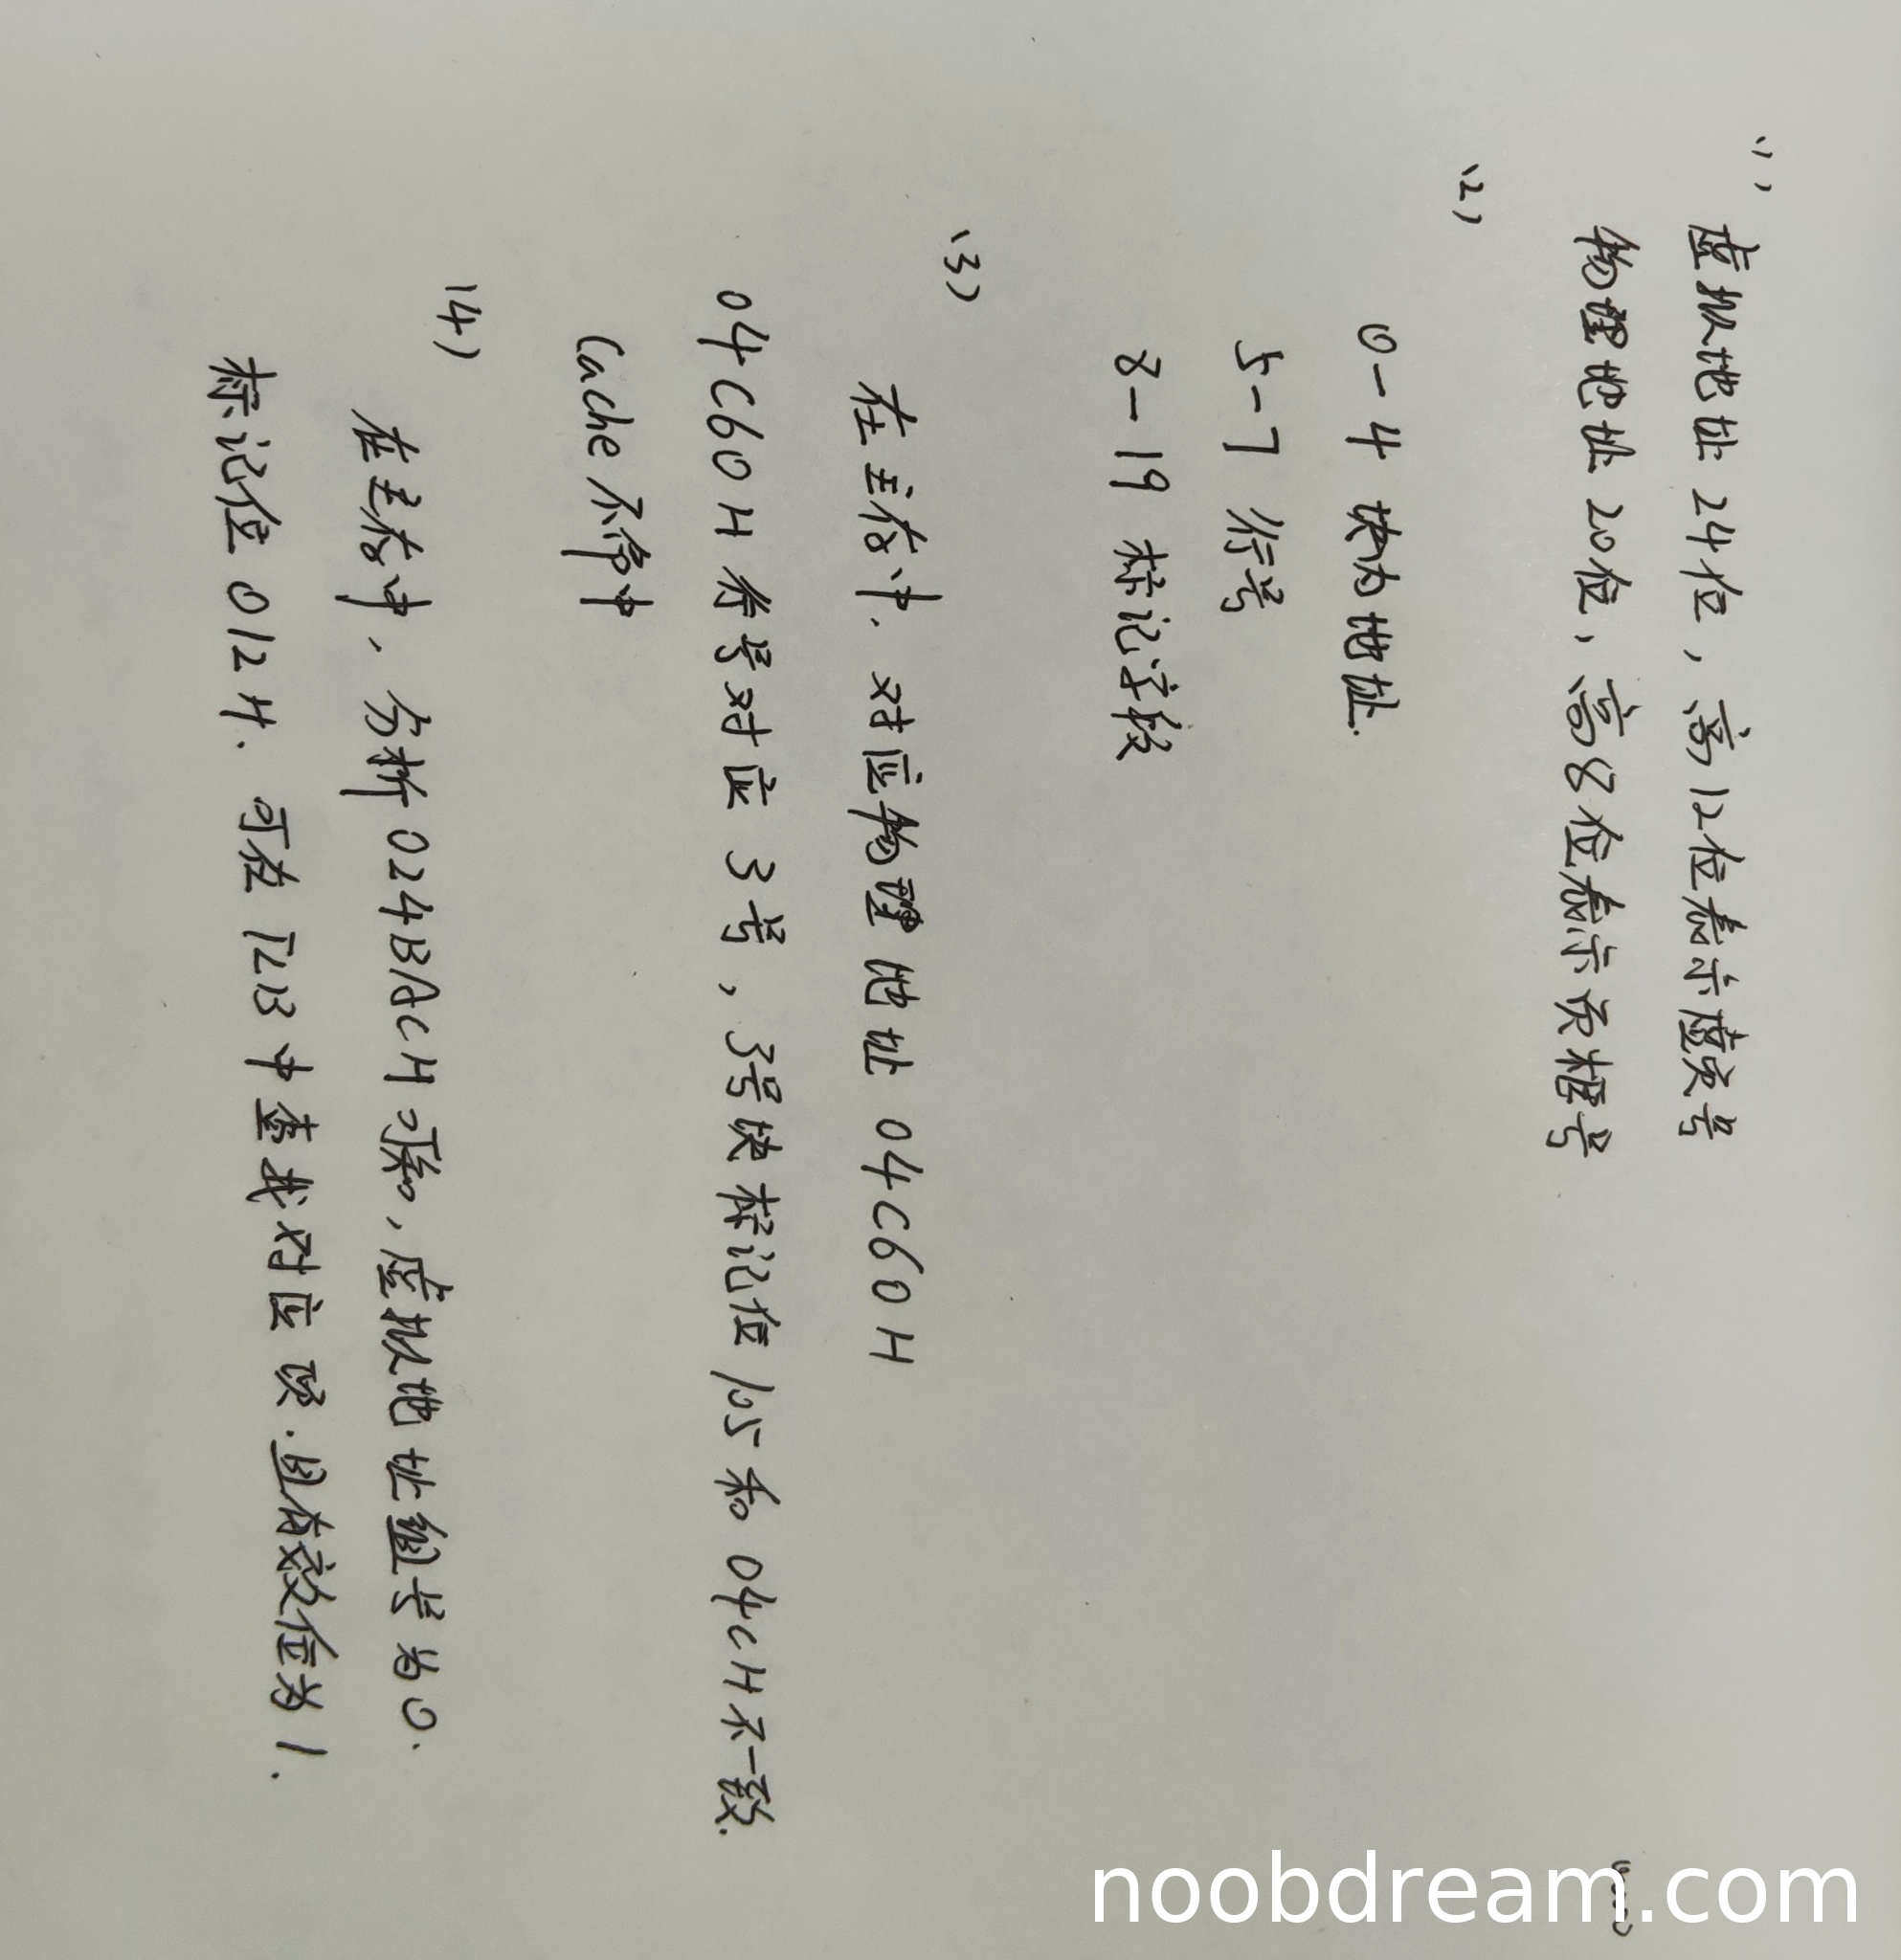 (1)
虚拟地址24位，高12位表示虚页号
物理地址20位，高8位表示页框号
(2)
0-4 块内地址.
5-7 行号
8-19 标记字段
(3)
在主存中. 对应物理地址 04C60H
04C60H 行号对应 3号，3号块标记位105和04CH不一致.
Cache不命中
(4)
在主存中，分析024BACH 可知，虚拟地址组号为0.
标记位 012H. 可在TLB中查找对应项.且有效位为1.
noobdream.com